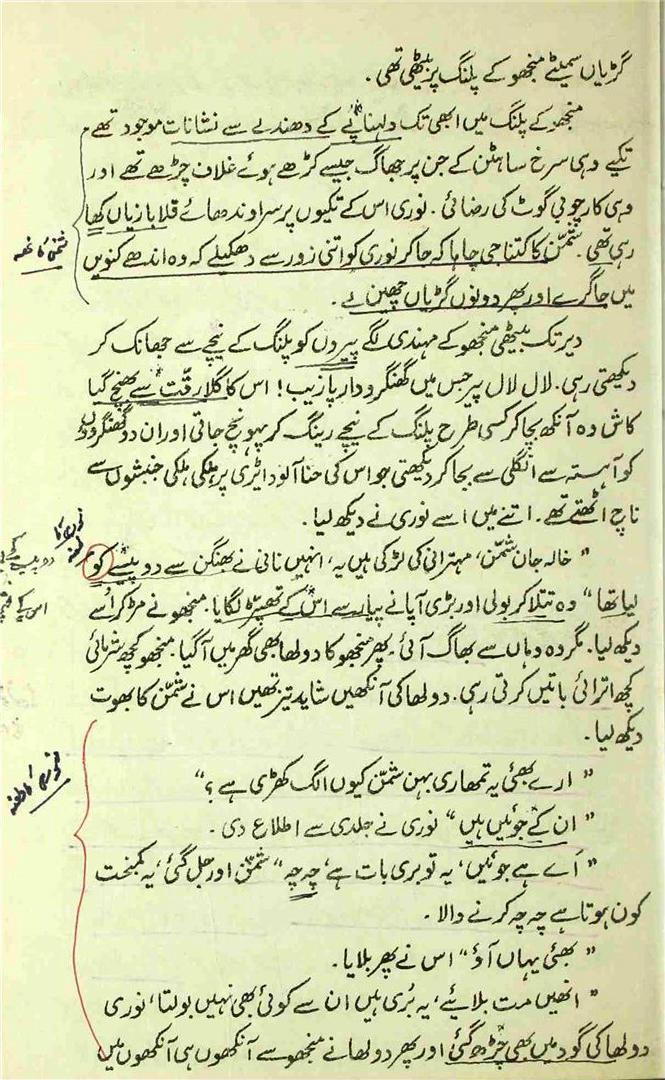 گڑیاں سمیٹے منجھو کے پلنگ پر بیٹھی تھی۔
منجھو کے پلنگ میں ابھی تک دلہناپے کے دھندلے سے نشانات موجود تھے،
تکیے وہی سرخ ساٹن کے جن پر جھاگ جیسے کڑھے ہوئے غلاف چڑھے تھے اور
وہی کارچوبی گوٹ کی رضائی۔ نوری اس کے تکیوں پر سر اوندھائے قلابازیاں کھا
رہی تھی۔ شمّن کا کتنا جی چاہا کہ جا کر نوری کو اتنی زور سے دھکیلے کہ وہ اندھے کنویں
شمن کا غصہ
میں جا گرے اور پھر دونوں گڑیاں چھین لے۔
دیر تک بیٹھی منجھو کے مہندی لگے پیروں کو پلنگ کے نیچے سے جھانک کر
دیکھتی رہی۔ لال لال پیر جس میں گھنگرو دار پازیب! اس کا گلا رقّت سے بھنچ گیا
کاش وہ آنکھ بچا کر کسی طرح پلنگ کے نیچے رینگ کر پہونچ جاتی اور ان دو گھنگروؤں
کو آہستہ سے انگلی سے بجا کر دیکھتی جو اس کی حنا آلود ایڑی پر ہلکی ہلکی جنبشوں سے
ناچ اٹھتے تھے۔ اتنے میں اسے نوری نے دیکھ لیا۔
"خالہ جان شمّن، مہترانی کی لڑکی ہیں یہ، انہیں نانی نے بھنگن سے دو پیسے کو
لیا تھا" وہ تتلا کر بولی اور بڑی آپا نے پیار سے اس کے تھپڑ لگایا۔ منجھو نے مڑ کر اُسے
دیکھ لیا۔ مگر وہ وہاں سے بھاگ آئی۔ پھر منجھو کا دولھا بھی گھر میں آگیا۔ منجھو کچھ شرمائی
کچھ اترائی باتیں کرتی رہی۔ دولھا کی آنکھیں شاید تیز تھیں اس نے شمّن کا بھوت
دیکھ لیا۔
"ارے بھئی یہ تمھاری بہن شمّن کیوں الگ کھڑی ہے؟"
"ان کے جوئیں ہیں" نوری نے جلدی سے اطلاع دی۔
"اَے ہے جوئیں، یہ تو بری بات ہے، چہ چہ" شمّن اور جل گئی، یہ کمبخت
کون ہوتا ہے چہ چہ کرنے والا۔
"بھئی یہاں آؤ" اس نے پھر بلایا۔
"انھیں مت بلائیے، یہ بُری ہیں ان سے کوئی بھی نہیں بولتا، نوری
دولھا کی گود میں بھی چڑھ گئی اور پھر دولھا نے منجھو سے آنکھوں ہی آنکھوں میں